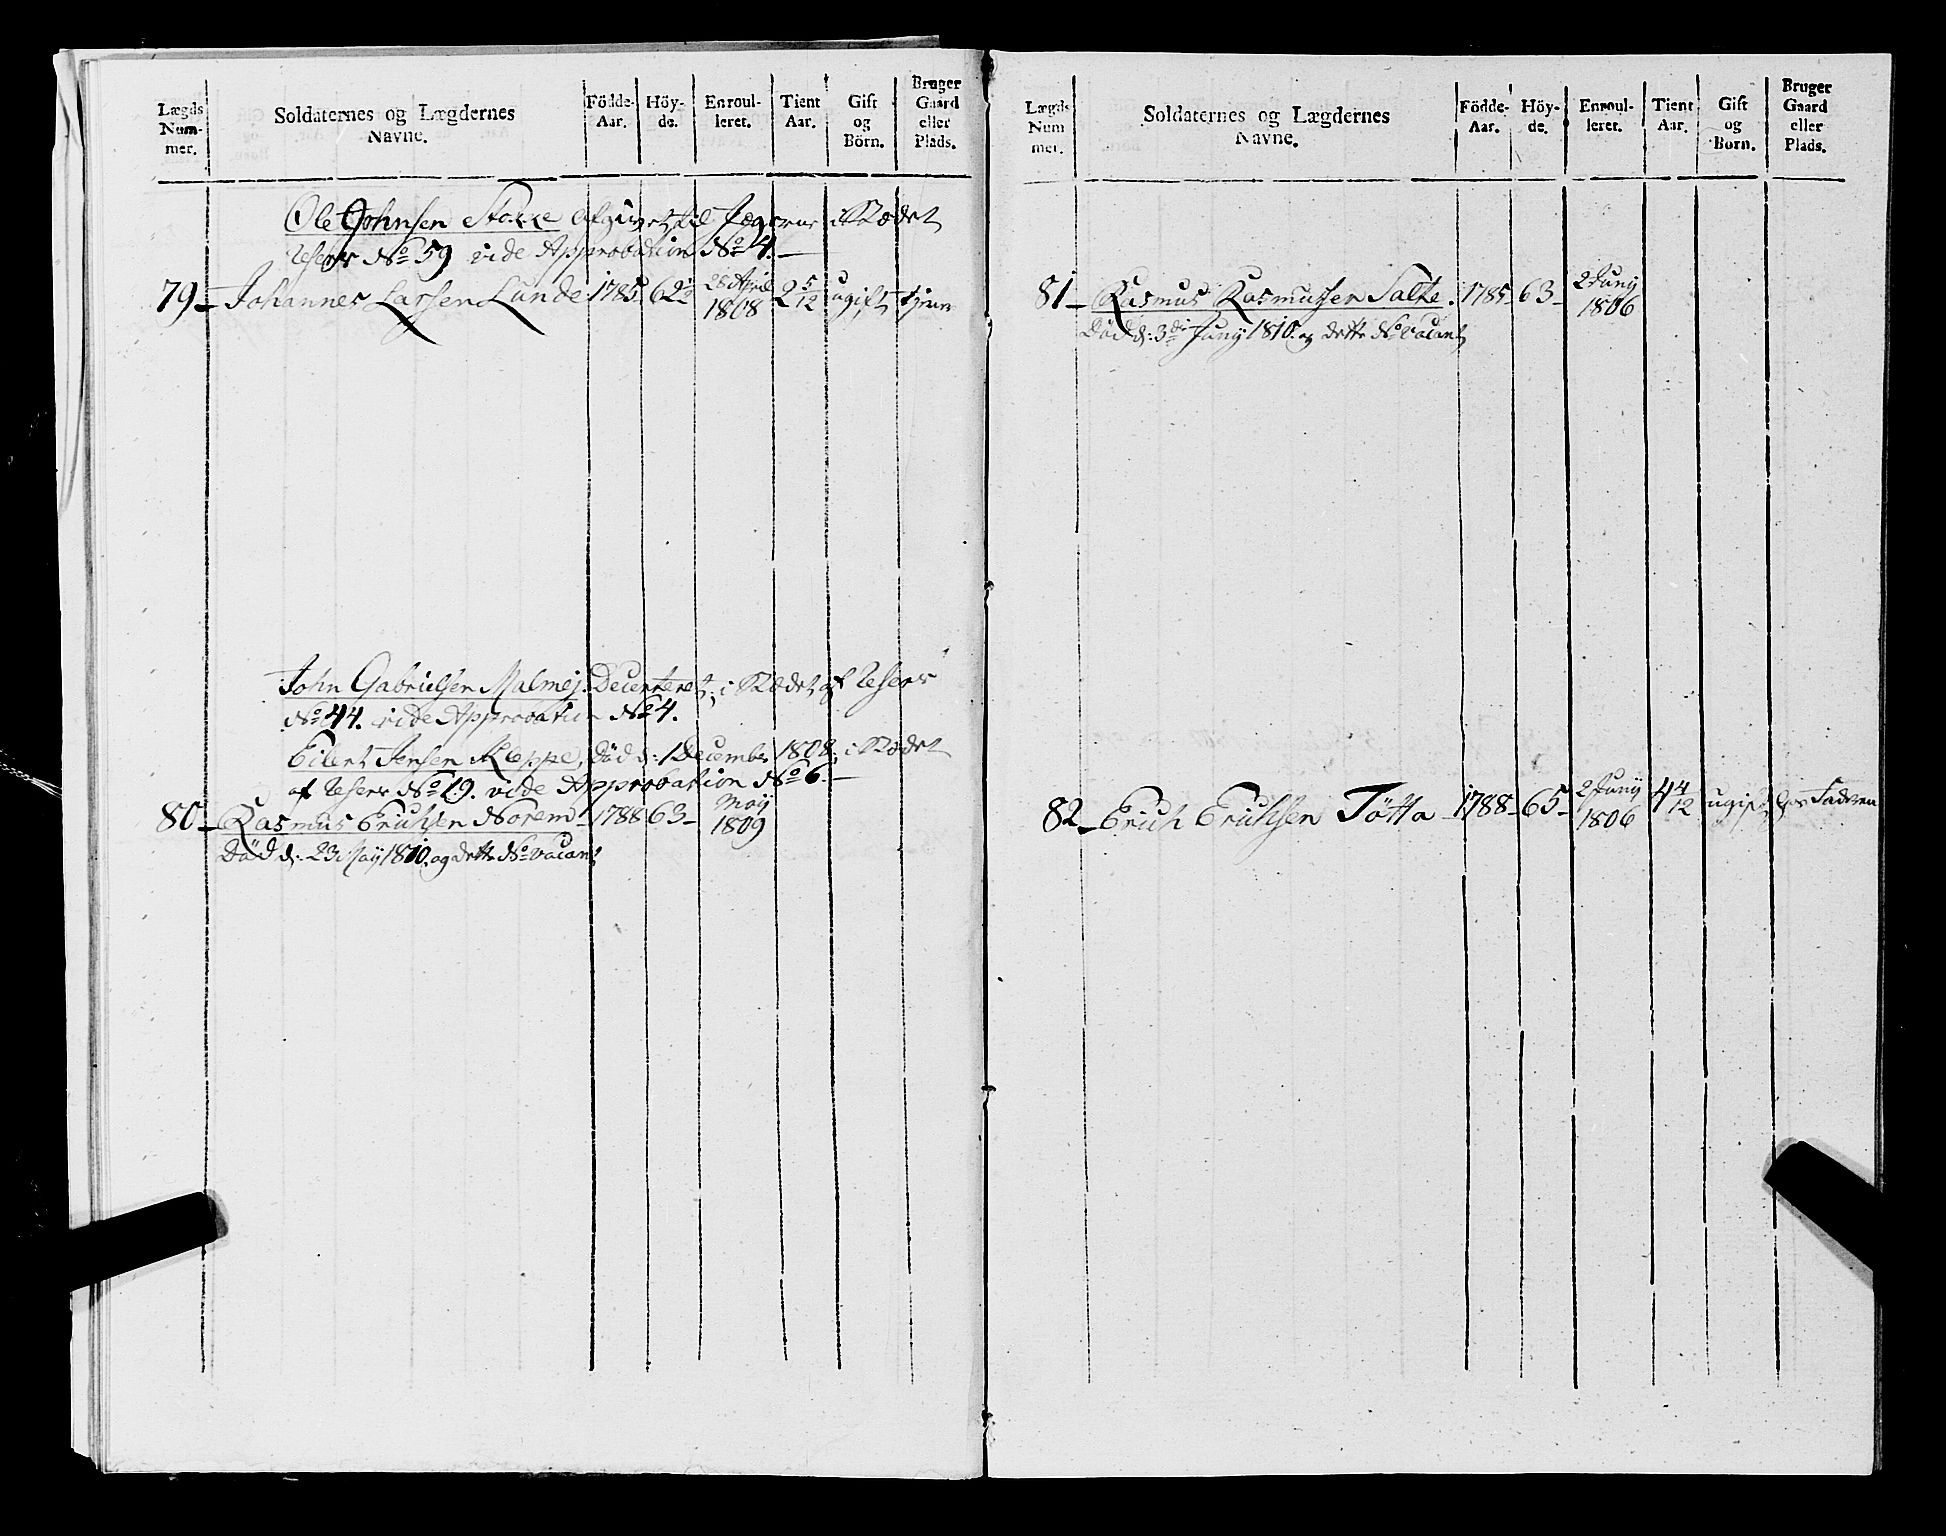 Lægds Num- mer.
Soldaternes og Lægdernes Navne.
Födde- Aar.
Höy- de.
Enroul- leret.
Tient Aar.
Gift og Börn.
Bruger Gaard eller Plads.
Ole Johnsen Stokke Afgivet til Jægerne i Stædet
Reserv No 59 vide Approbation No 4.—
79 – Johannes Larsen Lunde 1785 62½ 28 April 1808 2 5/12 ugift tjener
John Gabrielsen Malmej. Decerteret, i Stædet af Reserv
No 44. vide Approbation No 4.
Eilert Jensen Kleppe, Död d: 1 December 1808, i Stædet
af Reserv No 19. vide Approbation No 6.—
80 – Rasmus Erichsen Norem – 1788 63 – May 1809
Död d: 23 May 1810. og dette No vacant
Lægds Num mer.
Soldaternes og Lægdernes Navne.
Födde- Aar.
Höy- de.
Enroul- leret.
Tient Aar.
Gift og Börn.
Bruger Gaard eller Plads.
81 – Rasmus Rasmussen Salte. 1785 – 63 – 2 Juny 1806
Död d: 3de Juny 1810. og dette No vacant
82 – Erich Erichsen Tötta 1788 – 65 – 2 Juny 1806 4 4/12 ugift hos Faderen